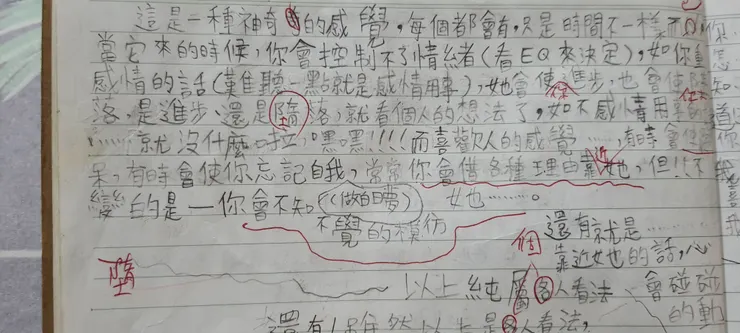 這是一種神奇的感覺,每個都會有,只是時間不一樣而
當它來的時候,你會控制不了情緒者(看EQ來決定),如你重
感情的話(難聽一點就是感情用事),她會使你進步,也會使你墮
落,是進步、還是墮落,就看個人的想法了,如不感情用事
……就沒什麼啦,嘿嘿!!!!而喜歡人的感覺……,有時會使你
呆,有時會使你忘記自我,常常你會借各種理由靠近她,但!!不
變的是一你會不知((做白日夢)) 她……。
不覺的模仿
個 還有就是……
靠近她的話,心
墮 以上純屬各人看法 會碰碰
的動
還有!雖然以上是各人看法,